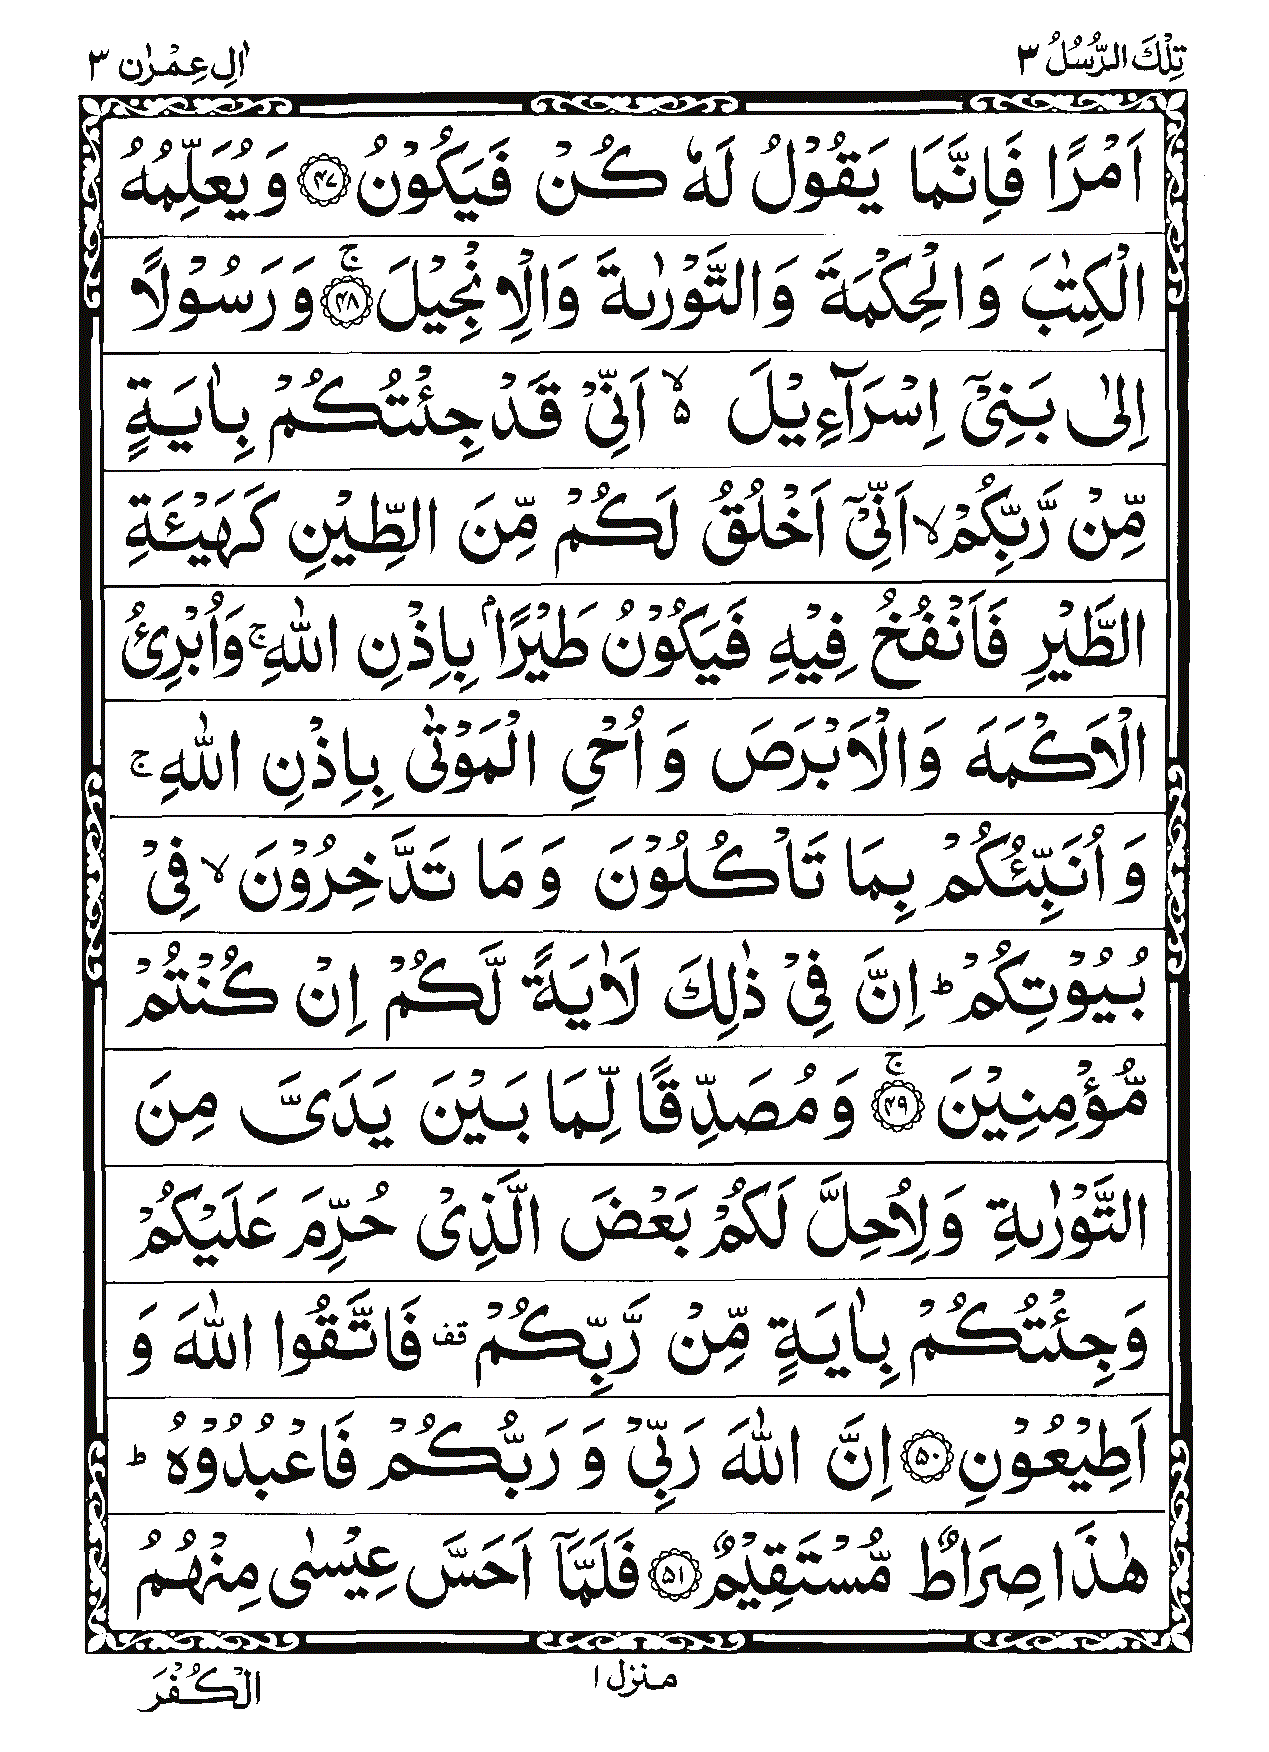 تِلْكَ الرُّسُلُ ٣
اٰلِ عِمْرٰن ٣
اَمْرًا فَاِنَّمَا يَقُوْلُ لَهٗ كُنْ فَيَكُوْنُ ﴿۴۷﴾ وَ يُعَلِّمُهُ
الْكِتٰبَ وَ الْحِكْمَةَ وَ التَّوْرٰىةَ وَ الْاِنْجِيْلَ ﴿۴۸﴾ۚ وَ رَسُوْلًا
اِلٰى بَنِيْۤ اِسْرَآءِيْلَ ۙ۬ اَنِّيْ قَدْ جِئْتُكُمْ بِاٰيَةٍ
مِّنْ رَّبِّكُمْ ۙ اَنِّيْۤ اَخْلُقُ لَكُمْ مِّنَ الطِّيْنِ كَهَيْـَٔةِ
الطَّيْرِ فَاَنْفُخُ فِيْهِ فَيَكُوْنُ طَيْرًاۢ بِاِذْنِ اللّٰهِ ۚ وَ اُبْرِئُ
الْاَكْمَهَ وَ الْاَبْرَصَ وَ اُحْيِ الْمَوْتٰى بِاِذْنِ اللّٰهِ ۚ
وَ اُنَبِّئُكُمْ بِمَا تَاْكُلُوْنَ وَ مَا تَدَّخِرُوْنَ ۙ فِيْ
بُيُوْتِكُمْ ؕ اِنَّ فِيْ ذٰلِكَ لَاٰيَةً لَّكُمْ اِنْ كُنْتُمْ
مُّؤْمِنِيْنَ ﴿۴۹﴾ۚ وَ مُصَدِّقًا لِّمَا بَيْنَ يَدَيَّ مِنَ
التَّوْرٰىةِ وَ لِاُحِلَّ لَكُمْ بَعْضَ الَّذِيْ حُرِّمَ عَلَيْكُمْ
وَ جِئْتُكُمْ بِاٰيَةٍ مِّنْ رَّبِّكُمْ قف فَاتَّقُوا اللّٰهَ وَ
اَطِيْعُوْنِ ﴿۵۰﴾ اِنَّ اللّٰهَ رَبِّيْ وَ رَبُّكُمْ فَاعْبُدُوْهُ ؕ
هٰذَا صِرَاطٌ مُّسْتَقِيْمٌ ﴿۵۱﴾ فَلَمَّاۤ اَحَسَّ عِيْسٰى مِنْهُمُ
منزل ١
الْكُفْرَ